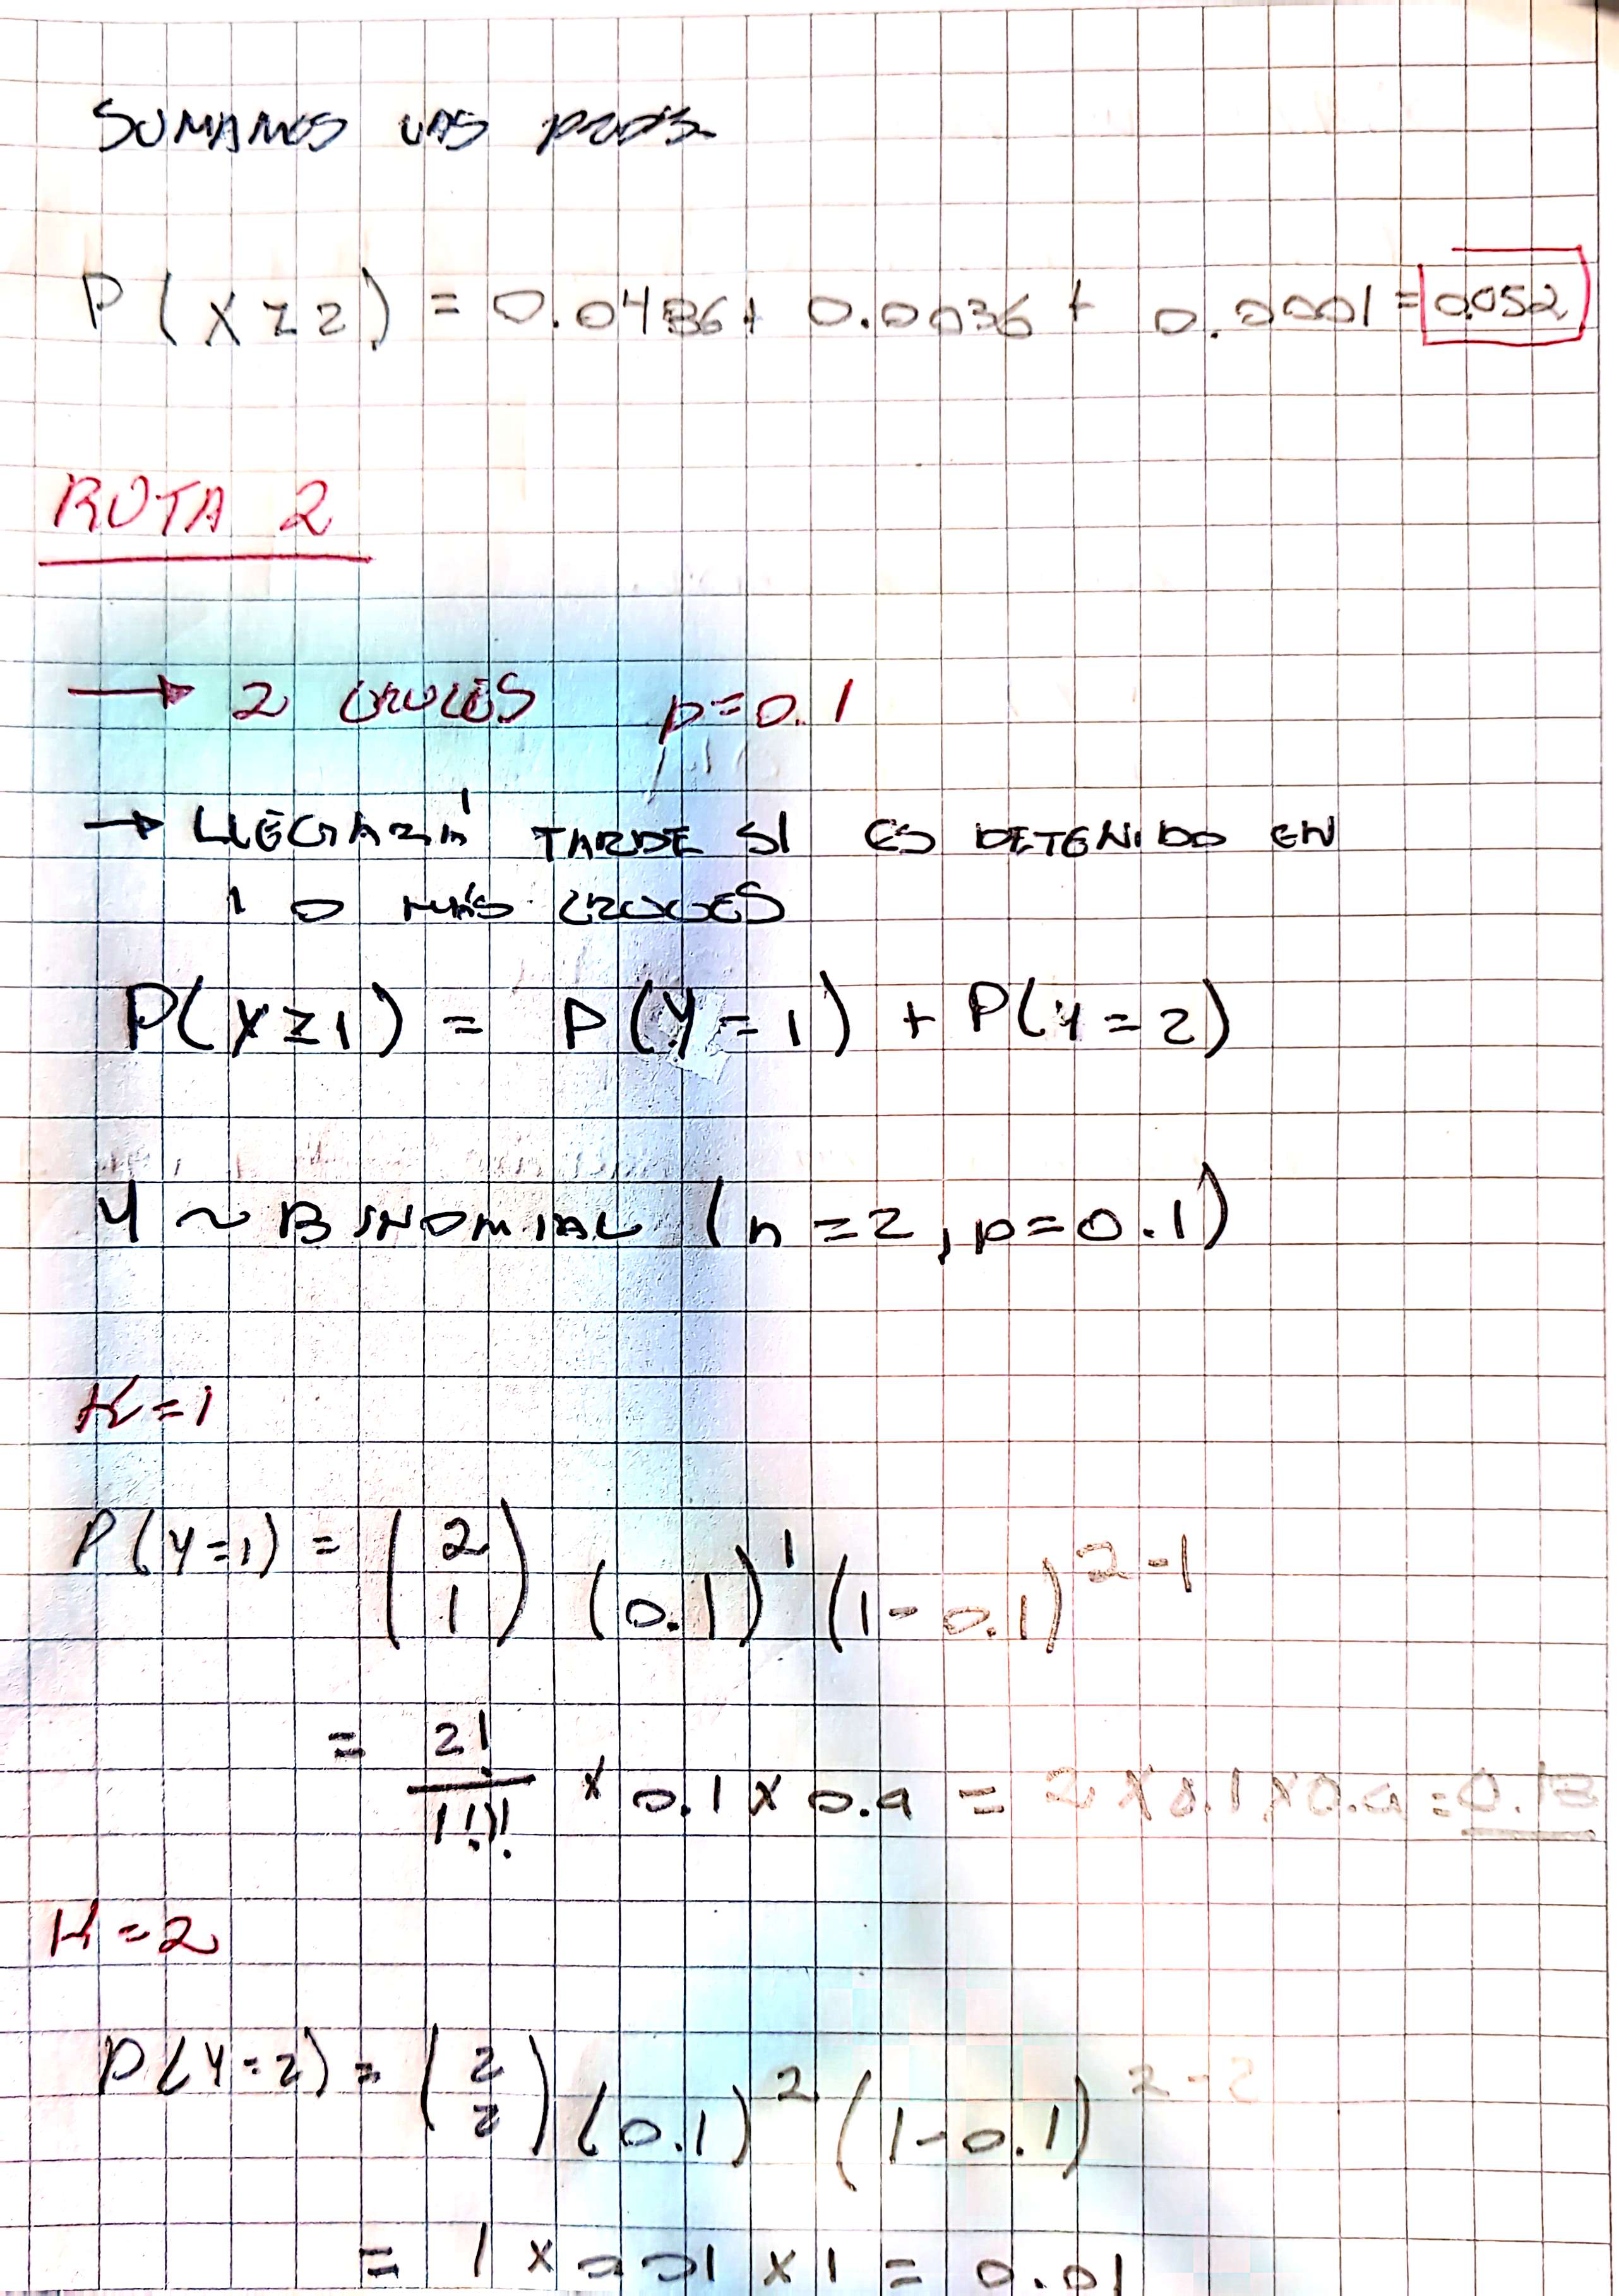 SUMAMOS LAS PROBS.
P(X≥2) = 0.0486 + 0.0036 + 0.0001 = 0.052
RUTA 2
→ 2 CRUCES p=0.1
→ LLEGARÁ TARDE SI ES DETENIDO EN
1 O MÁS CRUCES
P(Y≥1) = P(Y=1) + P(Y=2)
Y ~ BINOMIAL (n=2, p=0.1)
K=1
P(Y=1) = (2 1) (0.1)^1 (1-0.1)^2-1
= 2!/1!1! × 0.1 × 0.9 = 2 × 0.1 × 0.9 = 0.18
K=2
P(Y=2) = (2 2) (0.1)^2 (1-0.1)^2-2
= 1 × 0.01 × 1 = 0.01